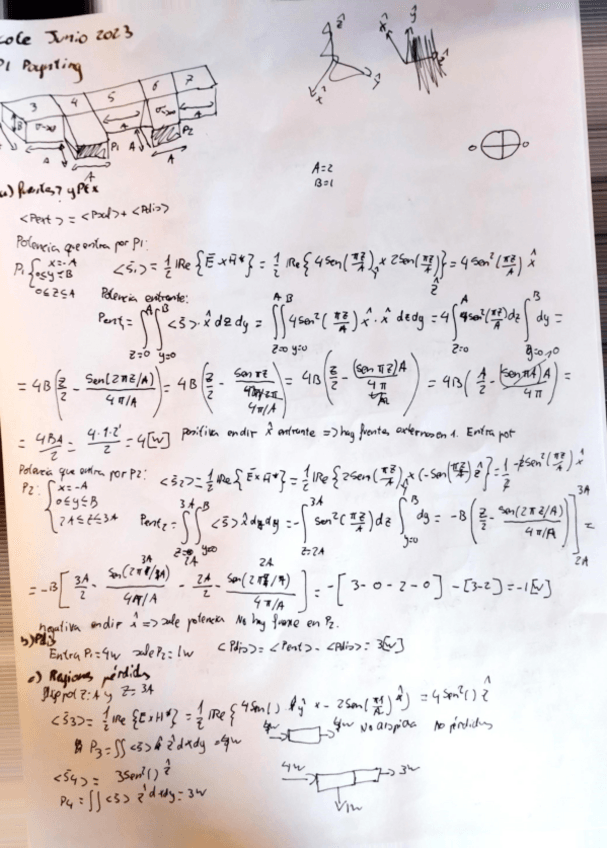 Junio 2023
P1 Poynting
3 4 5 6 7
σ→∞ σ→∞
B A A P1 A P2 A
ẑ ŷ x̂
x̂ ŷ ẑ
A=2
B=1
a) Fuentes? y Pex
<Pext> = <Prad> + <Pdis>
Potencia que entra por P1:
P1 { x=-A
0≤y≤B
0≤z≤A
<S̄1> = 1/2 Re{Ē x H̄*} = 1/2 Re{4 sen(πz/A) ŷ x 2 sen(πz/A) ẑ} = 4 sen²(πz/A) x̂
Potencia entrante:
Pent1 = ∫∫ <S̄>·x̂ dz dy = ∫∫ 4 sen²(πz/A) x̂·x̂ dz dy = 4 ∫ sen²(πz/A) dz ∫ dy =
= 4B (z/2 - sen(2πz/A)/(4π/A)) = 4B (z/2 - sen πz/(4π/A)) = 4B (z/2 - (sen πz)A/4π) = 4B (A/2 - (sen πA)A/4π) =
= 4BA/2 = 4·1·2/2 = 4[W] positiva en dir x̂ entrante => hay fuentes externas en 1. Entra pot
Potencia que entra por P2:
P2: { x=-A
0≤y≤B
2A≤z≤3A
<S̄2> = 1/2 Re{Ē x H̄*} = 1/2 Re{2 sen(πz/A) ŷ x (-sen(πz/A) ẑ} = 1/2 -2 sen²(πz/A) x̂
Pent2 = ∫∫ <S̄> x̂ dz dy = -∫ sen²(πz/A) dz ∫ dy = -B (z/2 - sen(2πz/A)/(4π/A))] 3A 2A =
= -B [3A/2 - sen(2π3A/A)/(4π/A) - 2A/2 - sen(2π2A/A)/(4π/A)] = -[3-0-2-0] - [3-2] = -1[W]
negativa en dir x̂ => sale potencia No hay fuente en P2.
b) Pdis
Entra P1=4W sale P2=1W <Pdis> = <Pent> - <Pdis> = 3[W]
c) Regiones pérdidas
z=A y z=3A
<S̄3> = 1/2 Re{Ē x H̄*} = 1/2 Re{4 sen() ŷ x -2 sen(πz/A) x̂} = 4 sen²() ẑ
P3 = ∫∫ <S̄> ẑ dx dy = 4W
4W 4W No disipa No pérdidas
<S̄4> = 3 sen²() ẑ
P4 = ∫∫ <S̄> ẑ dx dy = 3W
4W 3W
1W